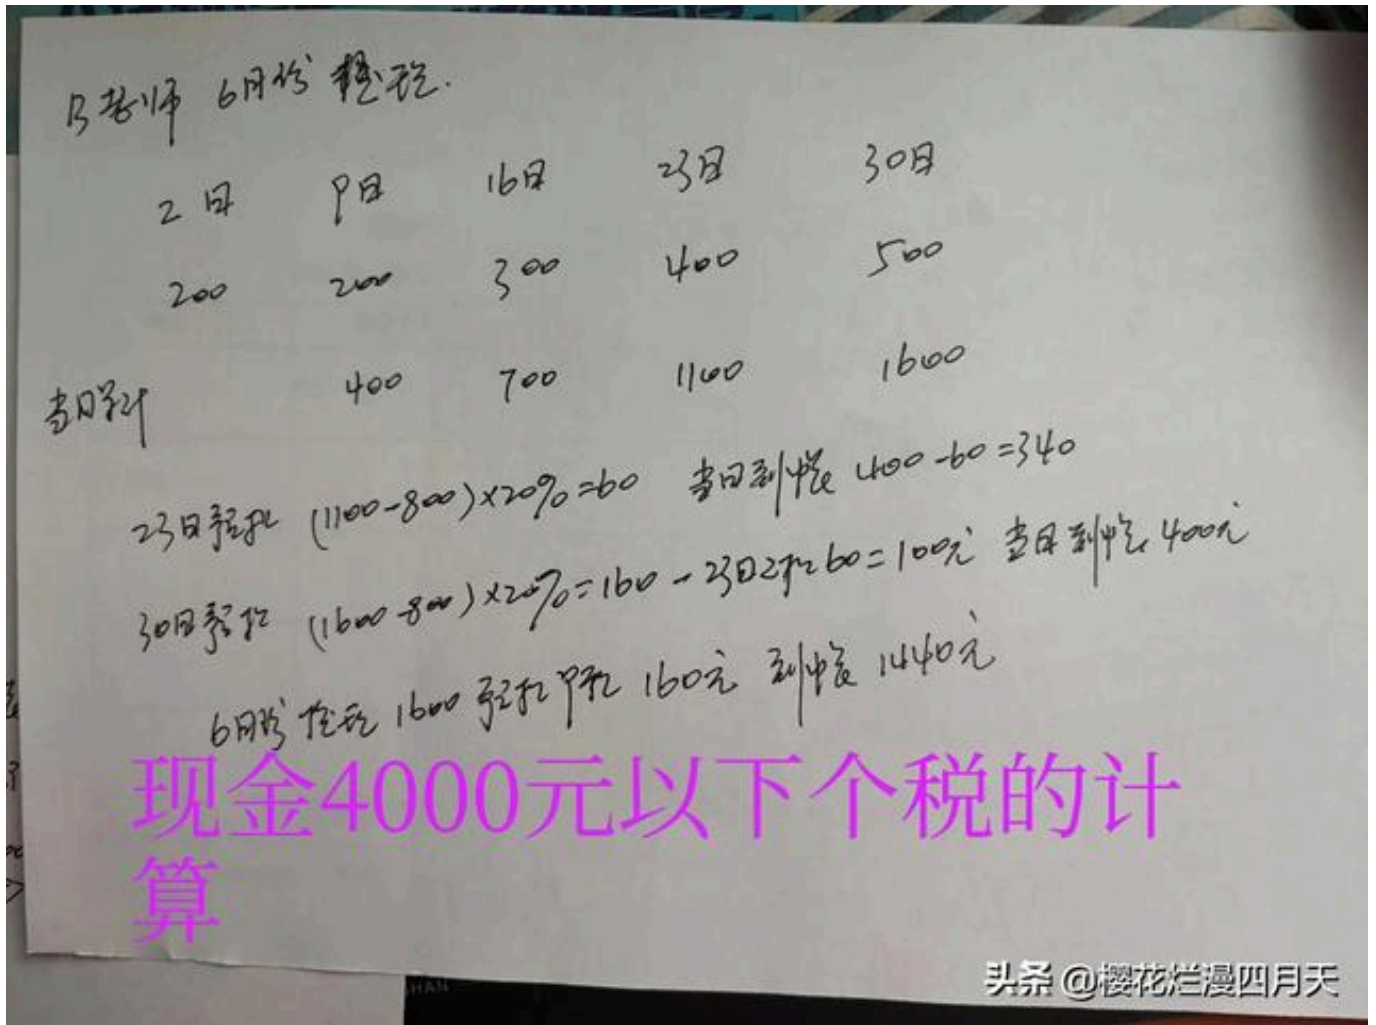 B老师 6月份提现.
2日 9日 16日 23日 30日
200 200 300 400 500
当日累计 400 700 1100 1600
23日预扣 (1100-800)×20%=60 当日到帐 400-60=340
30日预扣 (1600-800)×20%=160-23日已扣60=100元 当日到帐 400元
6月份提现 1600 预扣 160元 到帐 1440元
现金4000元以下个税的计
算
头条 @樱花烂漫四月天
HAN